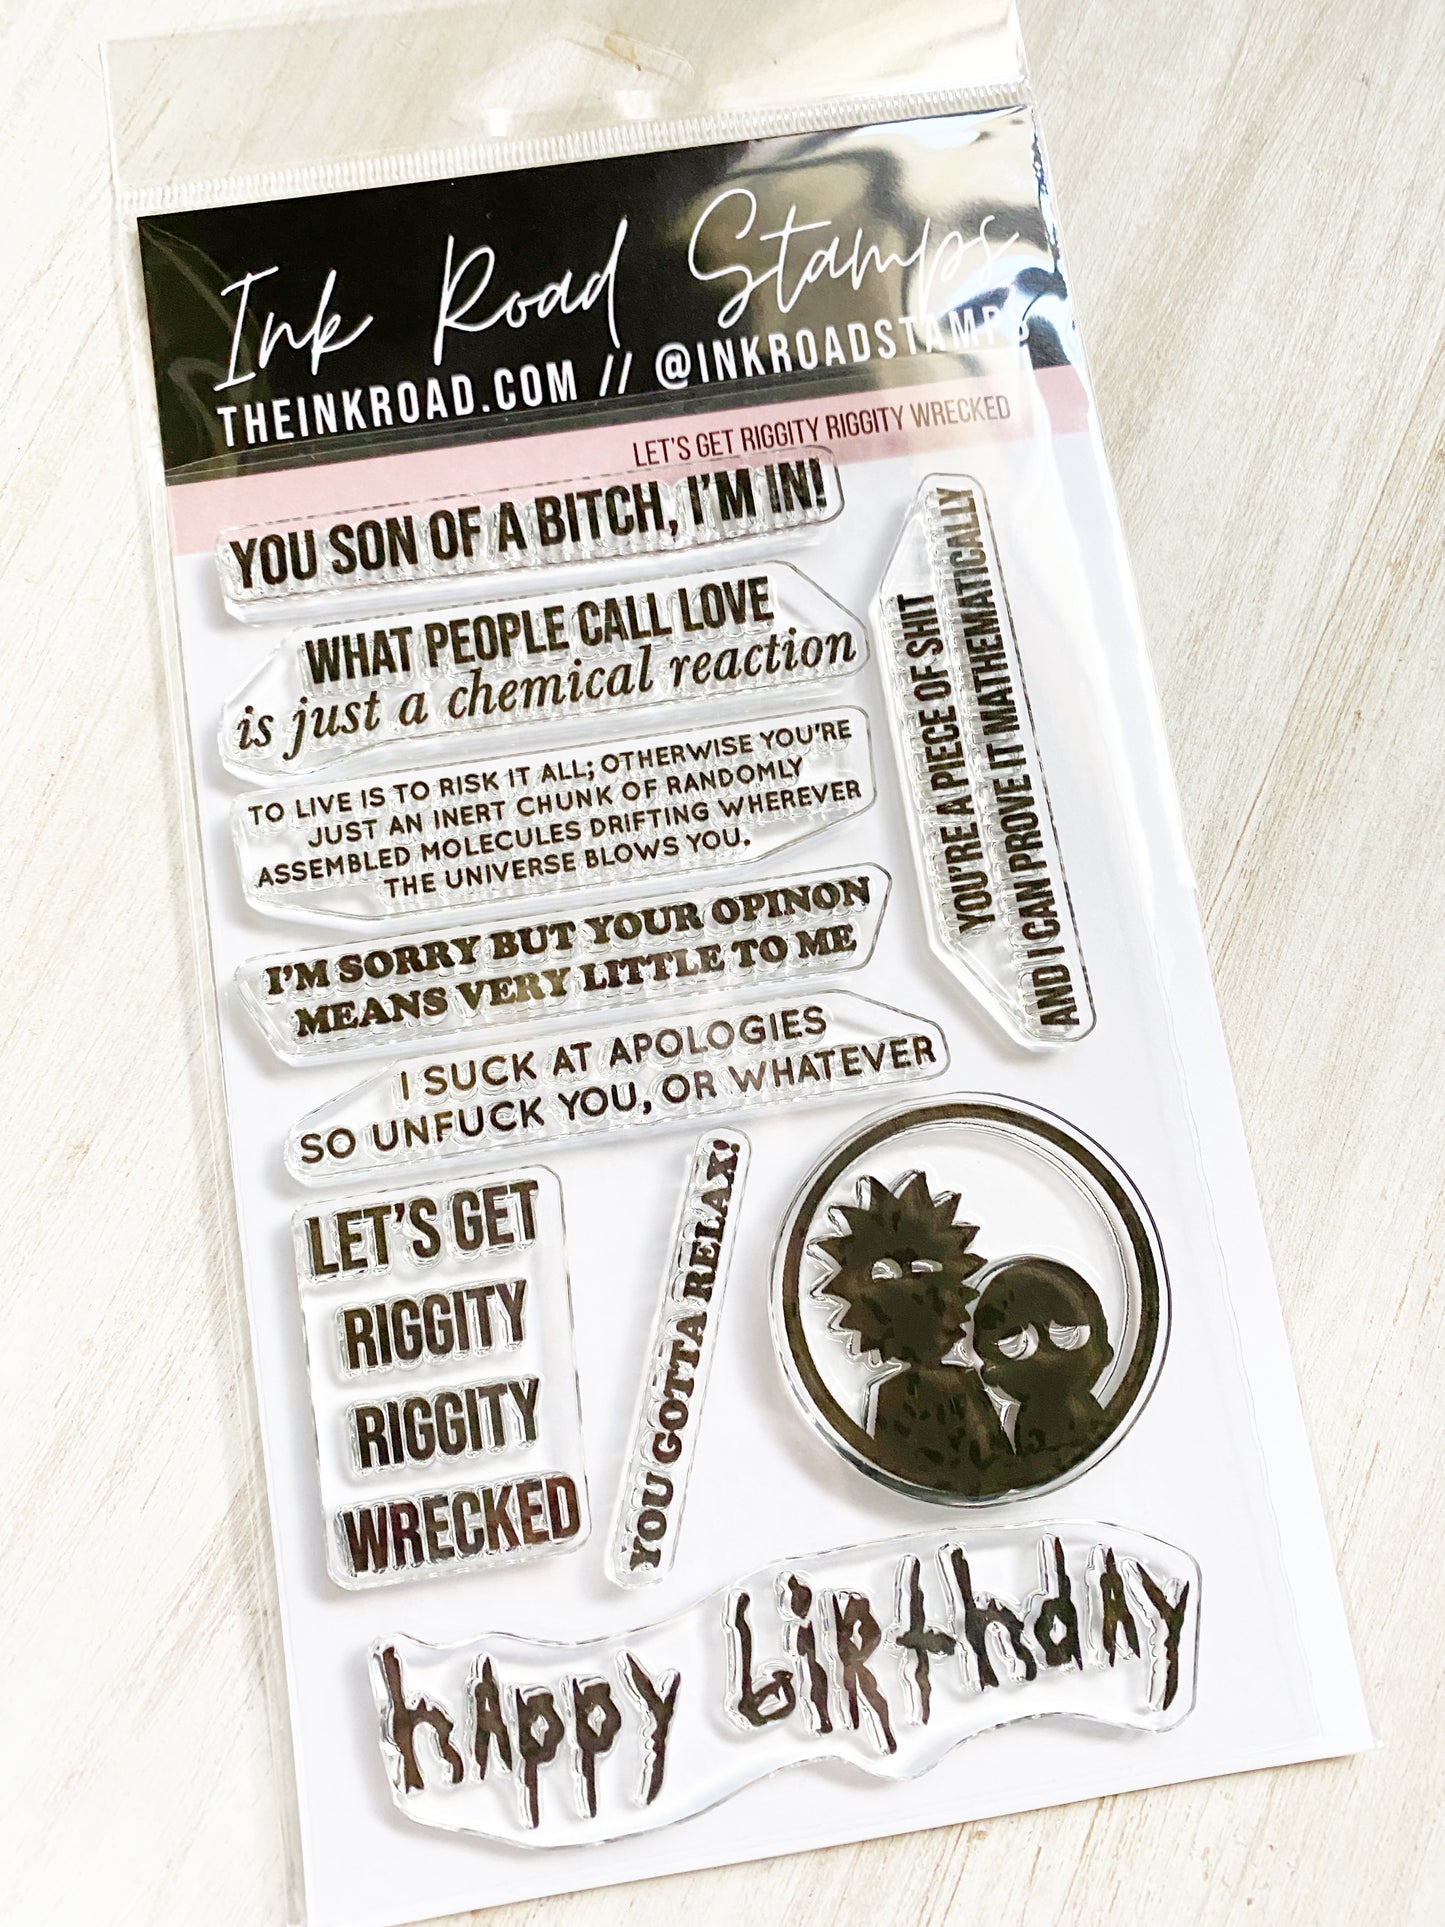 Ink Road Stamps
THEINKROAD.COM // @INKROADSTAMPS
LET'S GET RIGGITY RIGGITY WRECKED
YOU SON OF A BITCH, I'M IN!
WHAT PEOPLE CALL LOVE
is just a chemical reaction
TO LIVE IS TO RISK IT ALL; OTHERWISE YOU'RE
JUST AN INERT CHUNK OF RANDOMLY
ASSEMBLED MOLECULES DRIFTING WHEREVER
THE UNIVERSE BLOWS YOU.
I'M SORRY BUT YOUR OPINON
MEANS VERY LITTLE TO ME
I SUCK AT APOLOGIES
SO UNFUCK YOU, OR WHATEVER
YOU'RE A PIECE OF SHIT
AND I CAN PROVE IT MATHEMATICALLY
LET'S GET
RIGGITY
RIGGITY
WRECKED
YOU GOTTA RELAX!
happy birthday